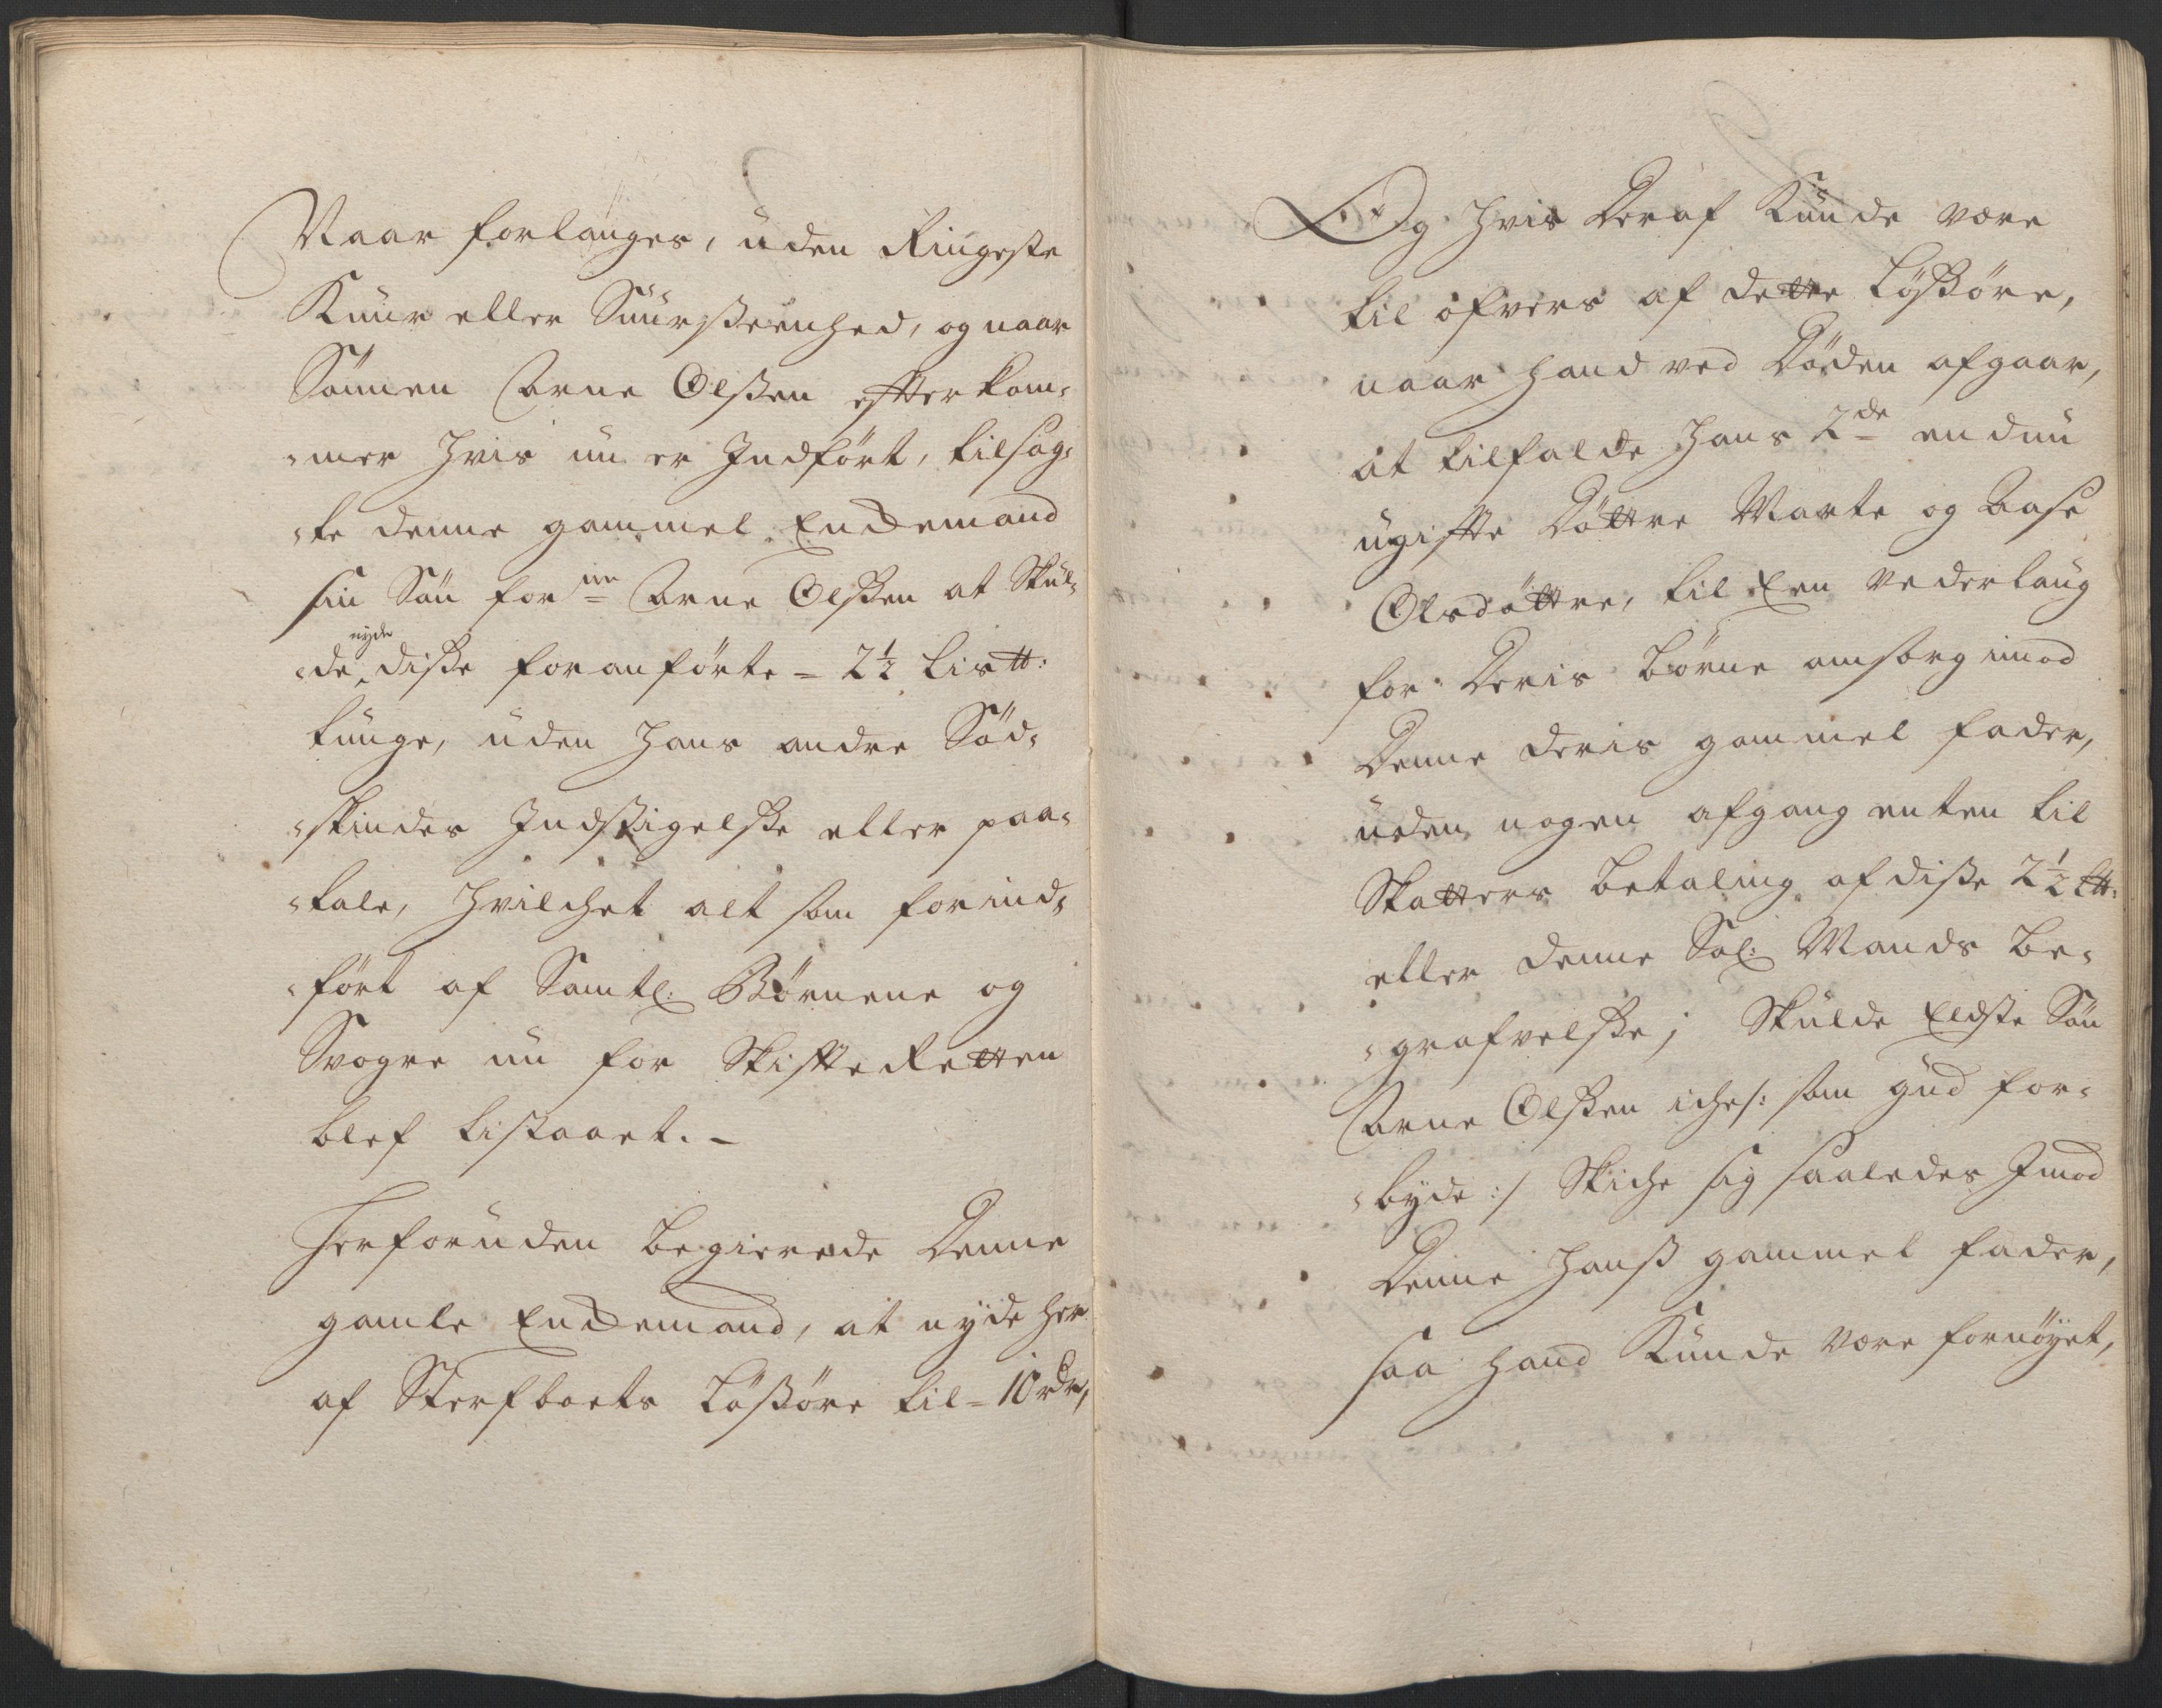 Naar forlanges, uden Ringeste
Knur eller Snurßeenhed, og naar
Sönnen Arne Olßen efterkom-
-mer hvis nu er Indfört, tilsag-
-te denne gammel Enckemand
sin Sön for nn Arne Olßen at Skul-
-de nyde diße foranförte - 2½ Lis ℔:
tunge, uden hans andre Söd-
-skindes Indßigelße eller paa-
-tale, hvilchet alt som forind-
-fört af Samtl: Börnene og
Svogre nu for Skifte Retten
blef tilstaaet. -
Herforuden begierede Denne
gamle Enckemand, at nyde her
af Sterfboets Lößöre til - 10 rdr,
Og hvis Deraf Kunde være
til ofvers af dette Löߨöre,
naar hand ved Döden afgaar,
at tilfalde hans 2de endnu
ugifte Döttre Marte og Aase
Olsdöttre, til Een Vederlaug
for Deris Börne omsorg imod
Denne deris gammel fader,
uden nogen afgang enten til
Skatters betaling af diße 2½ L℔:
eller denne Sal: Mands be-
-grafvelße; Skulde Eldste Sön
Arne Olßen iche /: som gud for-
-byde :/ Skiche sig saaledes Imod
Denne hanß gammel fader,
saa hand Kunde være fornöyet,